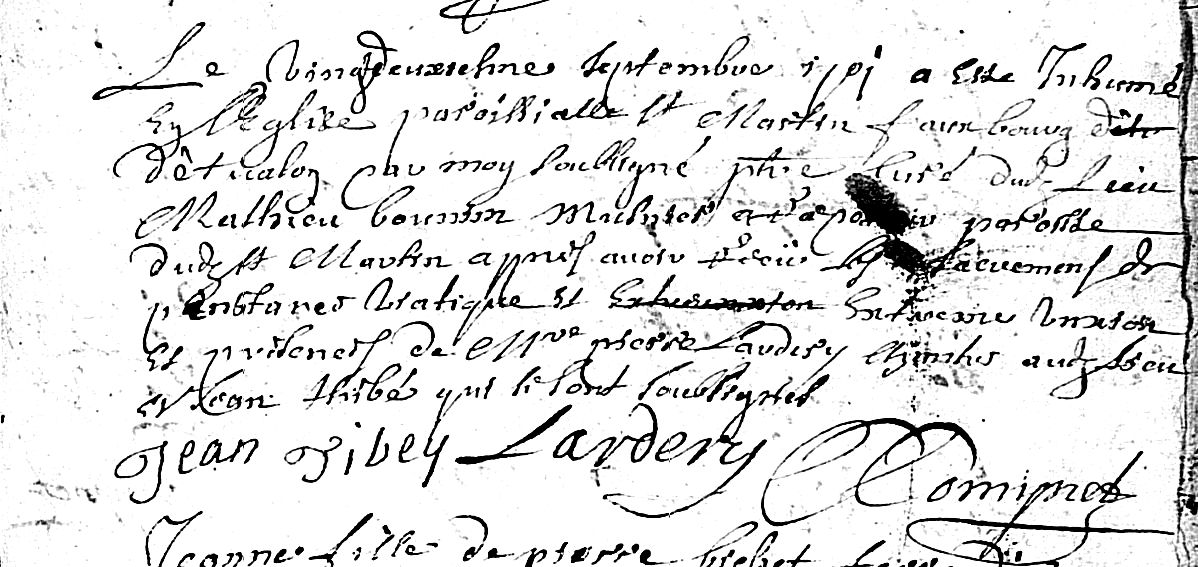 Le Vingtdeuxiesme septembre 1701 a Este Inhumé
En L'Eglise paroissialle st Martin faux bourg
d'êtvalon par moy soubsigné ptre Curé dudt Lieu
Mathieu bounin paroisse
dudt st Martin apres avoir Reciu les sacremens de
penitance Viatique et Extreme Unxion
Et presences de Mre pierre Lardery audt lieu
et Jean thibé qui se sont soubsignés
Jean Tibey Lardery Comignet
Jeanne fille de pierre bichet